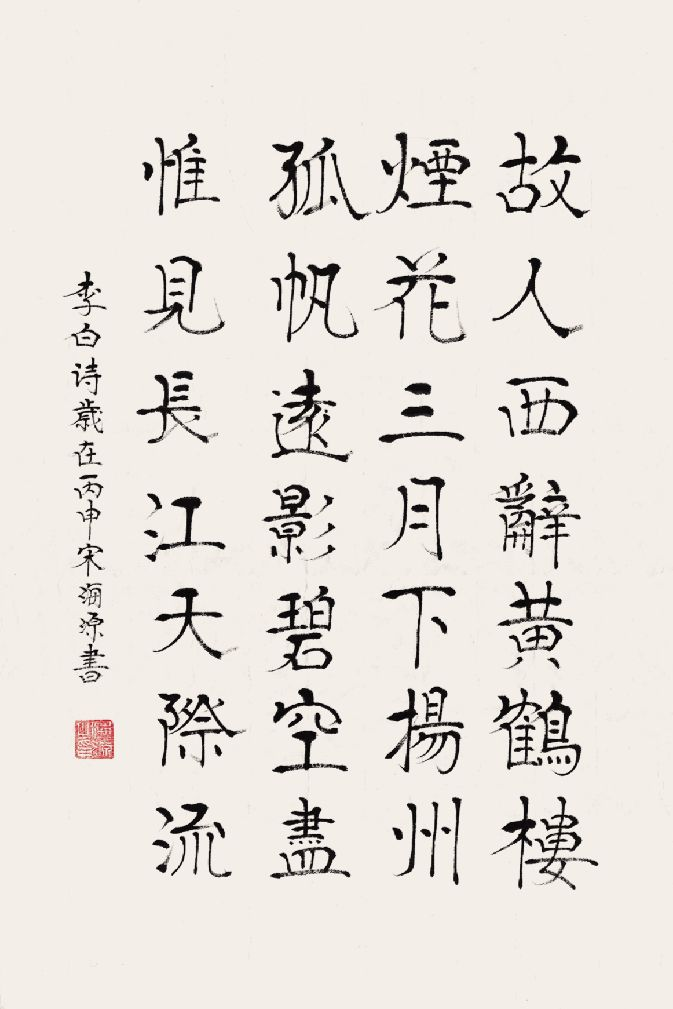 故人西辭黃鶴樓
煙花三月下揚州
孤帆遠影碧空盡
惟見長江天際流
李白诗歲在丙申宋海源書